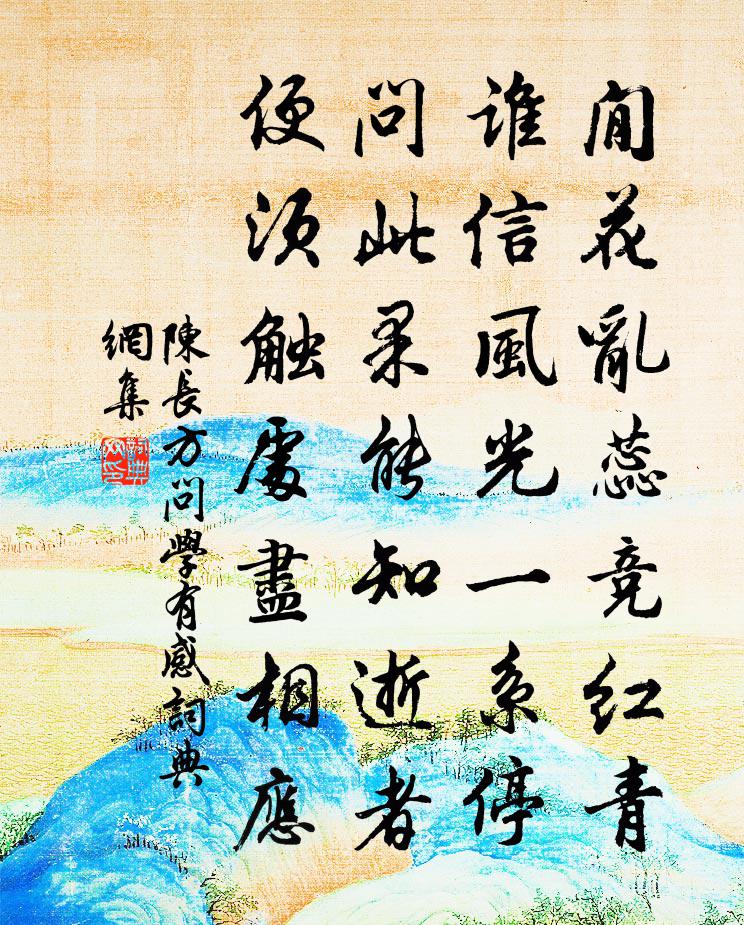 閒花亂蕊竞红青
誰信風光一系停
問此果能知逝者
便須触處盡相應
陳長方問學有感詞典
網集